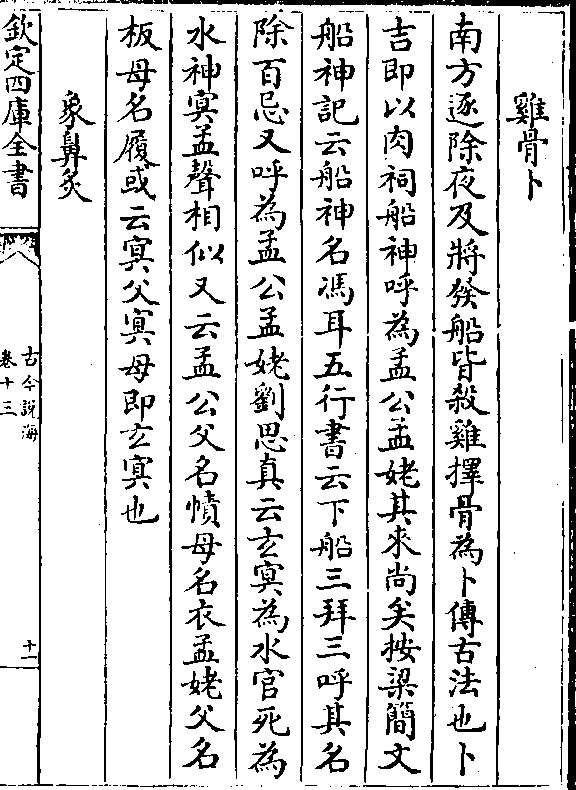 雞骨卜
南方逐除夜及將發船皆殺雞擇骨為卜傳古法也卜
吉即以肉祠船神呼為孟公孟姥其來尚矣按梁簡文
船神記云船神名馮耳五行書云下船三拜三呼其名
除百忌又呼為孟公孟姥劉思真云玄冥為水官死為
水神冥孟聲相似又云孟公父名幘母名衣孟姥父名
板母名履或云冥父冥母即玄冥也
象鼻炙
欽定四庫全書
古今説海
卷十三
十一